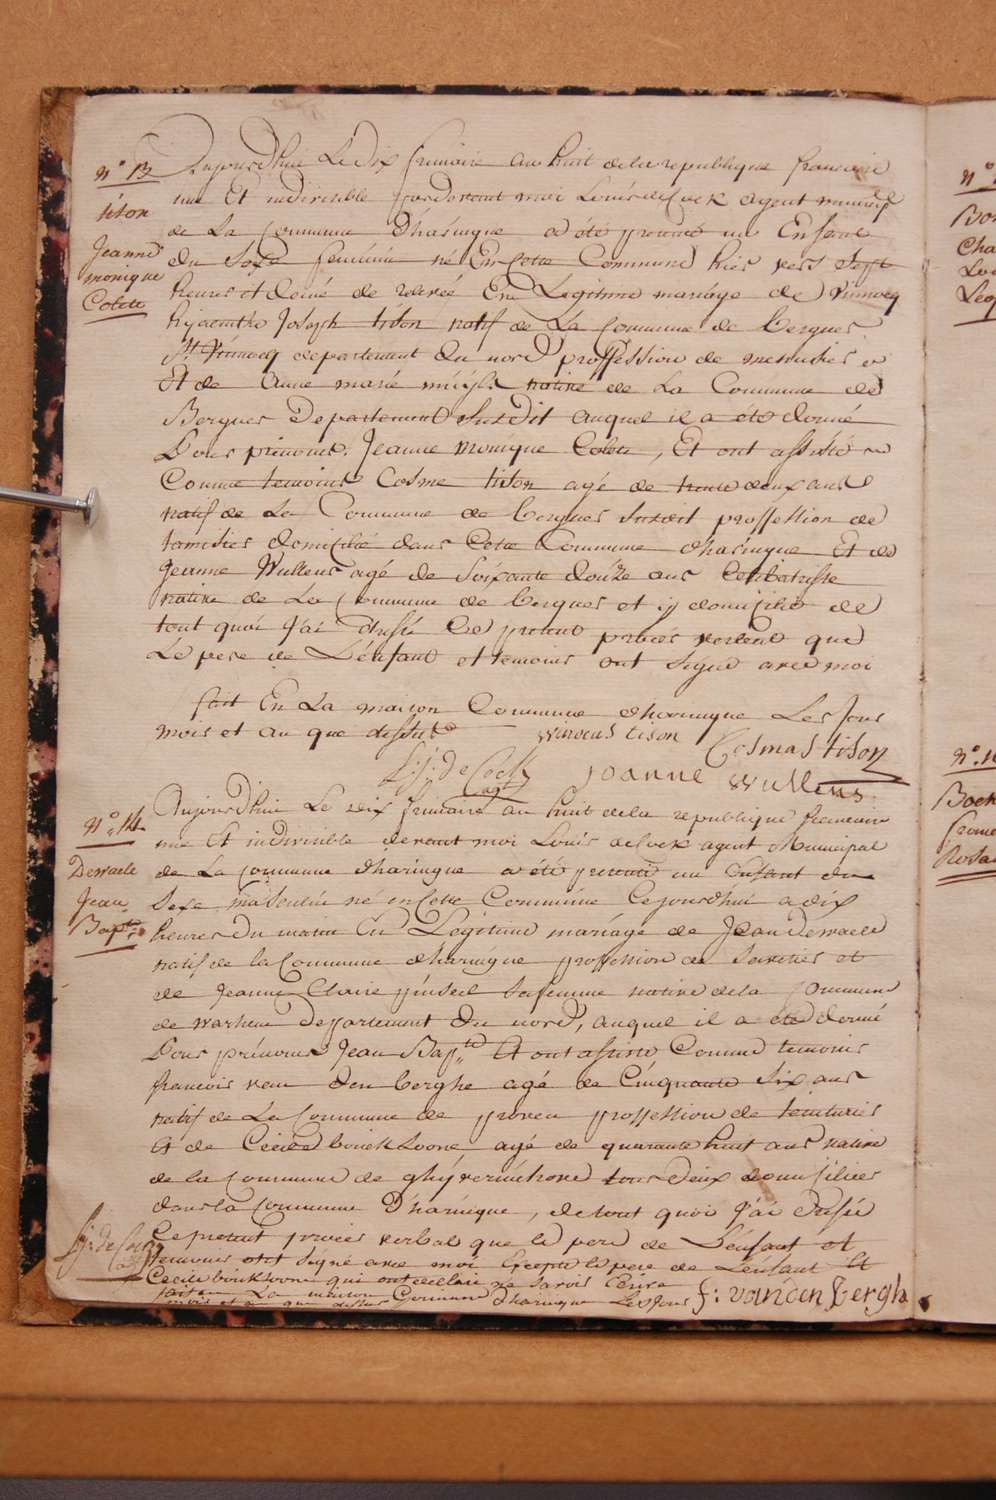 N° 13
tison
Jeanne
monique
Colete
Aujourdhuie Le dix frimaire an huit de la republique francaise
une Et indivisible pardevant moi Louis deCock agent municip
de La Commune d'haringue a été presenté un Enfant
du Sexe feminin né En Cette Commune hier vers Sept
heures et demié de relevée En Legitime mariage de Vinnocq
hijacinthe Joseph tison natif de La Commune de bergues
St Vinnocq departement du nord proffession de menusier
Et de Anne marie native de La Commune de
Bergues Departement Susdit auquel il a été donné
Pour prenoms Jeanne Monique Colete, Et ont assisté
Comme temoins Cosme tison agé de trente deux ans
natif de La Commune de bergues Susdit proffession de
tamisier domicilié dans Cette Commune d'haringue Et de
Jeanne Wullens agé de Soixante douze ans
native de La Commune de bergues et ij domicilié de
tout quoi J'ai dressé Ce present procés verbal que
Le pere de L'enfant et temoins ont Signé avec moi
fait En La maison Commune d'haringue Les Jour
mois et an que dessus
winocus tison
Cosmas tison
L: J: de Cock
agt
joanne wullens
N° 14
Dewaele
Jean
Bapte
Aujourdhuie Le dix frimaire an huit de la republique francaise
une Et indivisible devant moi Louis deCock agent Municipal
de La Commune d'haringue a été presenté un Enfant du
Sexe masculin né en Cette Commune Cejourdhui a dix
heures Du matin En Légitime mariage de Jean Dewaele
natif de la Commune d'haringue proffession de Savetier et
de Jeanne Claire pinseel Safemme native de la Commune
de warhem Departement Du nord, auquel il a été donné
Pour prénoms Jean Bapte Et ont assisté Comme temoins
francois van den berghe agé de Cinquante Six ans
natif de La Commune de proven proffession de teinturier
Et de Cecile bouckloone agé de quarante huit ans native
de la Commune de ghÿverinchove tous deux domiciliés
dans la Commune D'haringue, de tout quoi J'ai dressé
Ce present procés verbal que le pere de L'enfant et
temoins ont Signé avec moi Excepté le pere de L'enfant Et
Cecile boukloone qui ont declaré ne Savoir Ecrire
fait en La maison Commune d'haringue Les Jour
mois et an que dessus
f: vanden bergh
L: J: de Cock
agt
N°
N°
Boek
Rosa